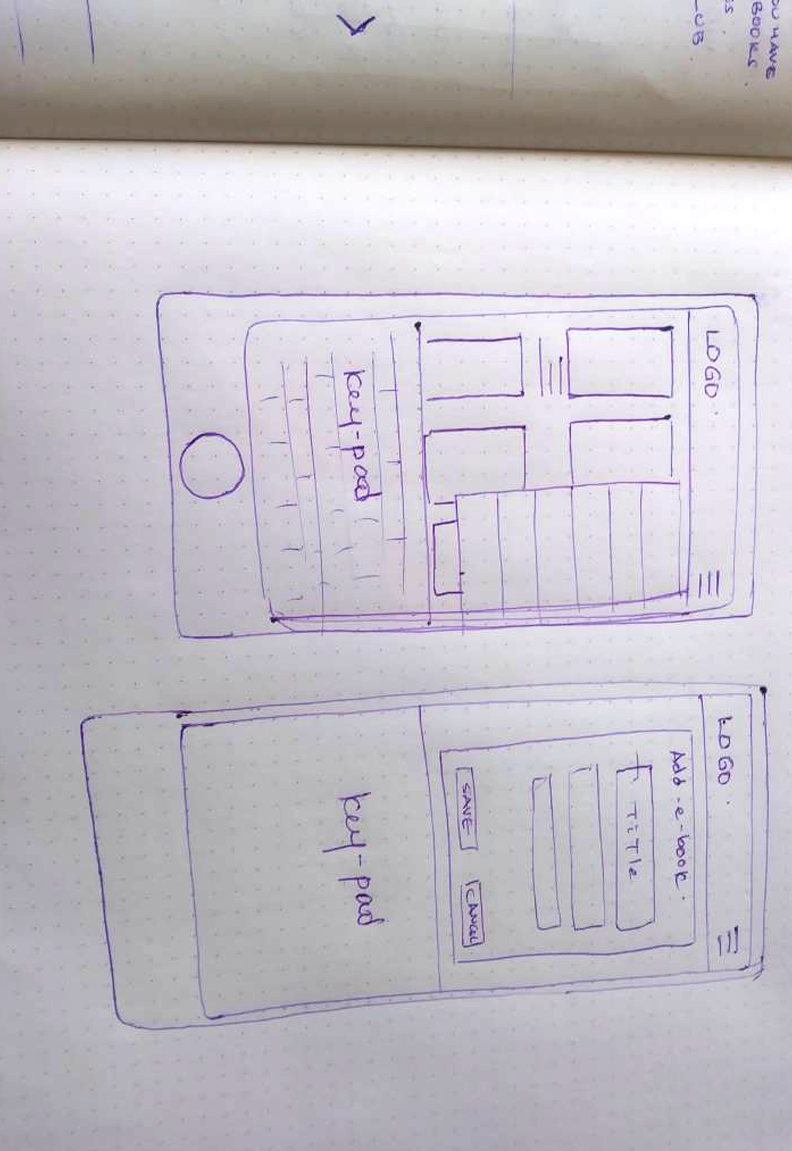 OU HAVE
BOOKS.
ES
LUB.
LOGO.
key-pad
LOGO.
Add-e-book.
TiTle
SAVE
CANCEL
key-pad